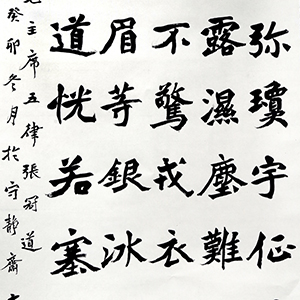 弥瓊宇征
露濕塵難
不驚戎衣
眉等銀冰
道恍若塞
主席五律張冠道
癸卯冬月於守靜齋